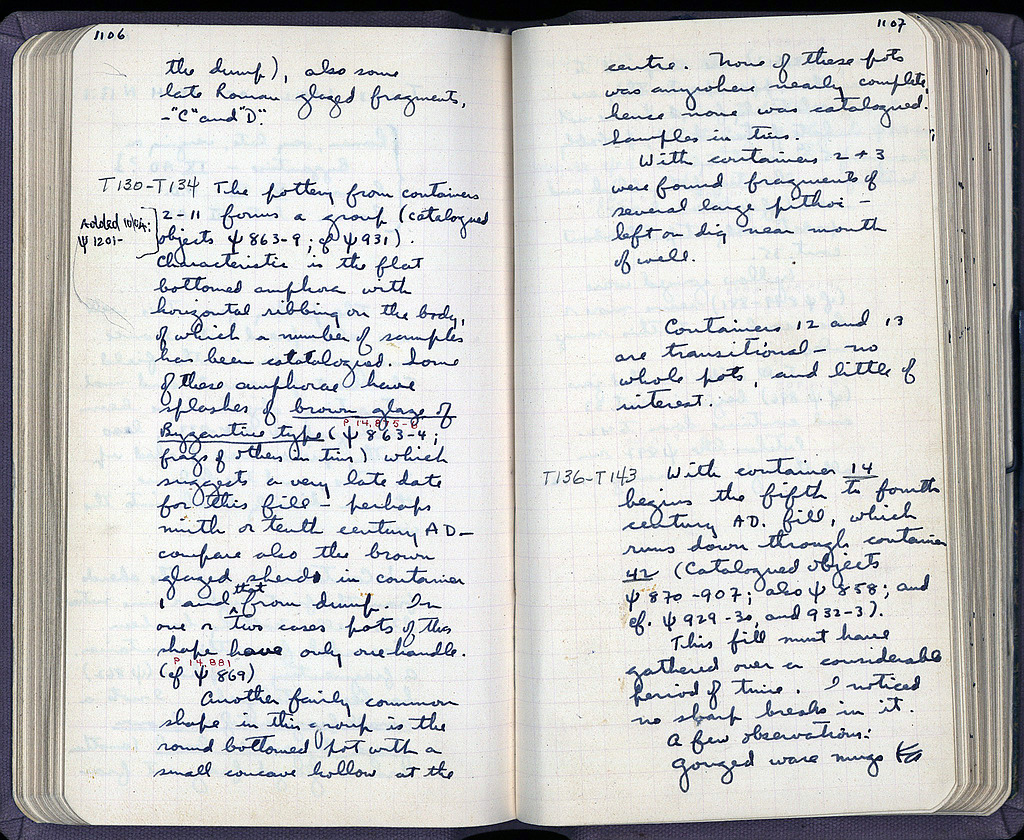 1106
the dump), also some
late Roman glazed fragments,
- "C" and "D".
T130-T134 The pottery from containers
2-11 forms a group (catalogued
Added 10/04:
Ψ 1201-
objects Ψ 863-9; cf Ψ 931).
Characteristic is the flat
bottomed amphora with
horizontal ribbing on the body,
of which a number of samples
has been catatalogued. Some
of these amphorae have
splashes of brown glaze of
P 14,875-6
Byzantine type (Ψ 863-4;
frags of others in tins) which
suggests a very late date
for this fill - perhaps
ninth or tenth century AD -
compare also the brown
glazed sherds in container
1 and that from dump. In
one or two cases pots of this
shape have only one handle.
P 14,881
(cf Ψ 869)
Another fairly common
shape in this group is the
round bottomed pot with a
small concave hollow at the
1107
centre. None of these pots
was anywhere nearly complete,
hence none was catalogued.
Samples in tins.
With containers 2 + 3
were found fragments of
several large pithoi -
left on dig near mouth
of well.
Containers 12 and 13
are transitional - no
whole pots, and little of
interest.
T136-T143 With container 14
begins the fifth to fourth
century AD. fill, which
runs down through container
42 (Catalogued objects
Ψ 870-907; also Ψ 858; and
cf. Ψ 929-30, and 932-3).
This fill must have
gathered over a considerable
period of time. I noticed
no sharp breaks in it.
A few observations:
Gouged ware mugs